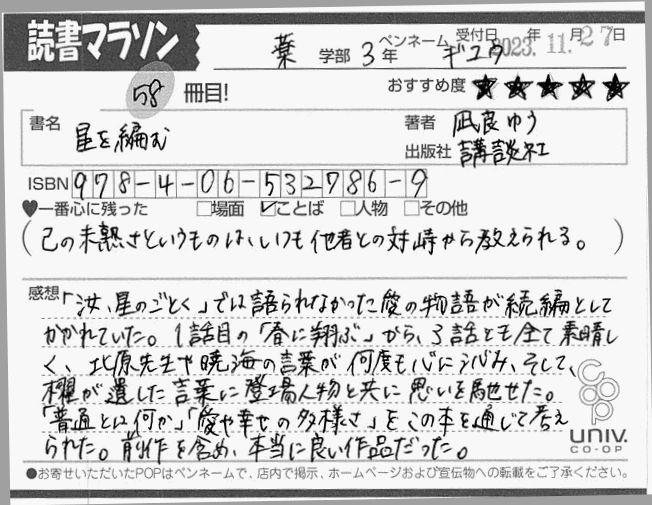 読書マラソン
薬 学部 3年 ペンネーム ギユウ 受付日 2023.年 11.月 27日
58 冊目! おすすめ度 ★★★★★
書名 星を編む 著者 凪良ゆう
出版社 講談社
ISBN 978-4-06-532786-9
♥一番心に残った □場面 ☑ことば □人物 □その他
(己の未熟さというものは、いつも他者との対峙から教えられる。)
感想 「汝、星のごとく」では語られなかった愛の物語が続編として
かかれていた。1話目の「春に翔ぶ」から、3話とも全て素晴し
く、北原先生や暁海の言葉が何度も心にうかみ、そして、
櫂が遺した言葉に登場人物と共に思いを馳せた。
「普通とは何か」「愛や幸せの多様さ」をこの本を通じて考え
られた。前作を含め、本当に良い作品だった。
coop
UNIV.
CO-OP
●お寄せいただいたPOPはペンネームで、店内で掲示、ホームページおよび宣伝物への転載をご了承ください。